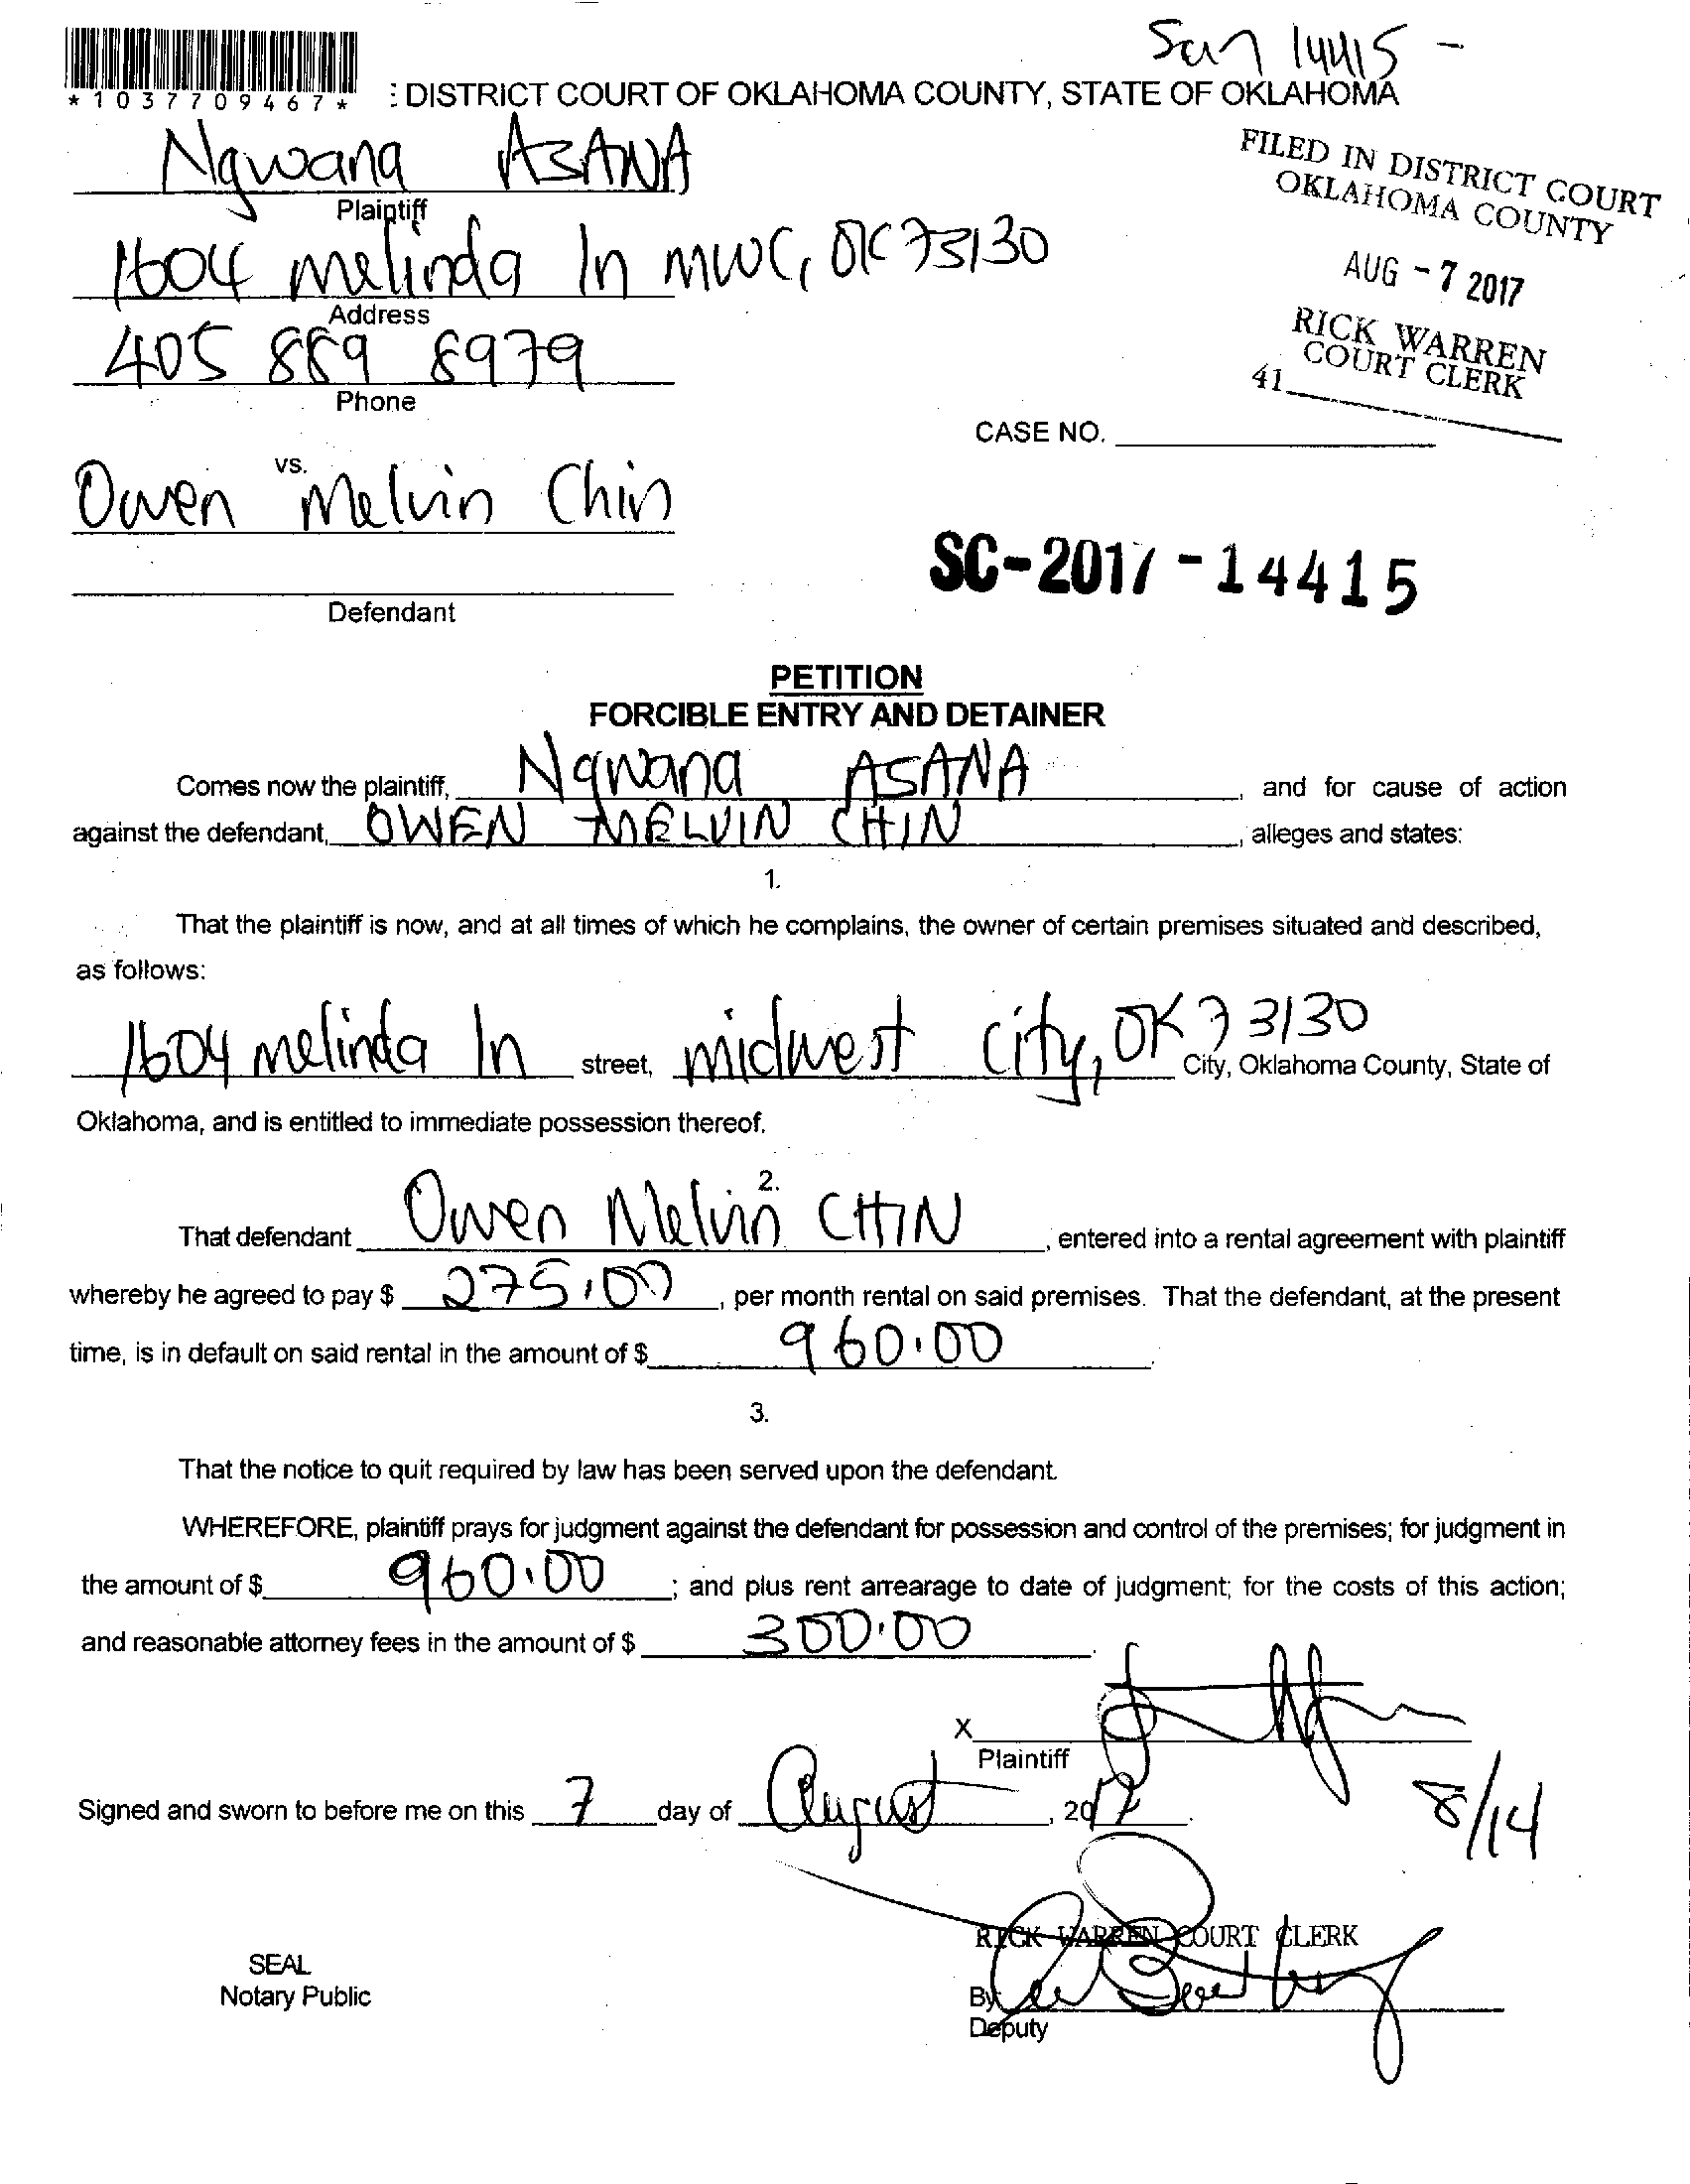 Sc17 14415 -
*1037709467*
: DISTRICT COURT OF OKLAHOMA COUNTY, STATE OF OKLAHOMA
Ngwana ASANA
Plaintiff
FILED IN DISTRICT COURT
OKLAHOMA COUNTY
AUG - 7 2017
RICK WARREN
COURT CLERK
41
1604 melinda ln MWC, OK 73130
Address
405 889 8979
Phone
CASE NO.
vs.
Owen Melvin Chin
Defendant
SC-2017-14415
PETITION
FORCIBLE ENTRY AND DETAINER
Comes now the plaintiff, Ngwana ASANA, and for cause of action
against the defendant, OWEN MELVIN CHIN, alleges and states:
1.
That the plaintiff is now, and at all times of which he complains, the owner of certain premises situated and described,
as follows:
1604 melinda ln street, midwest city, OK 73130 City, Oklahoma County, State of
Oklahoma, and is entitled to immediate possession thereof.
2.
That defendant Owen Melvin CHIN, entered into a rental agreement with plaintiff
whereby he agreed to pay $ 275.00, per month rental on said premises. That the defendant, at the present
time, is in default on said rental in the amount of $ 960.00.
3.
That the notice to quit required by law has been served upon the defendant.
WHEREFORE, plaintiff prays for judgment against the defendant for possession and control of the premises; for judgment in
the amount of $ 960.00; and plus rent arrearage to date of judgment; for the costs of this action;
and reasonable attorney fees in the amount of $ 300.00.
X
Plaintiff
Signed and sworn to before me on this 7 day of August, 2017.
8/14
RICK WARREN COURT CLERK
SEAL
Notary Public
By
Deputy